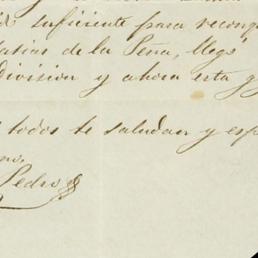 suficiente para reconq
Matias de la Peña, llegó
division y ahora esta g
todos te saludan y esp
Pedro